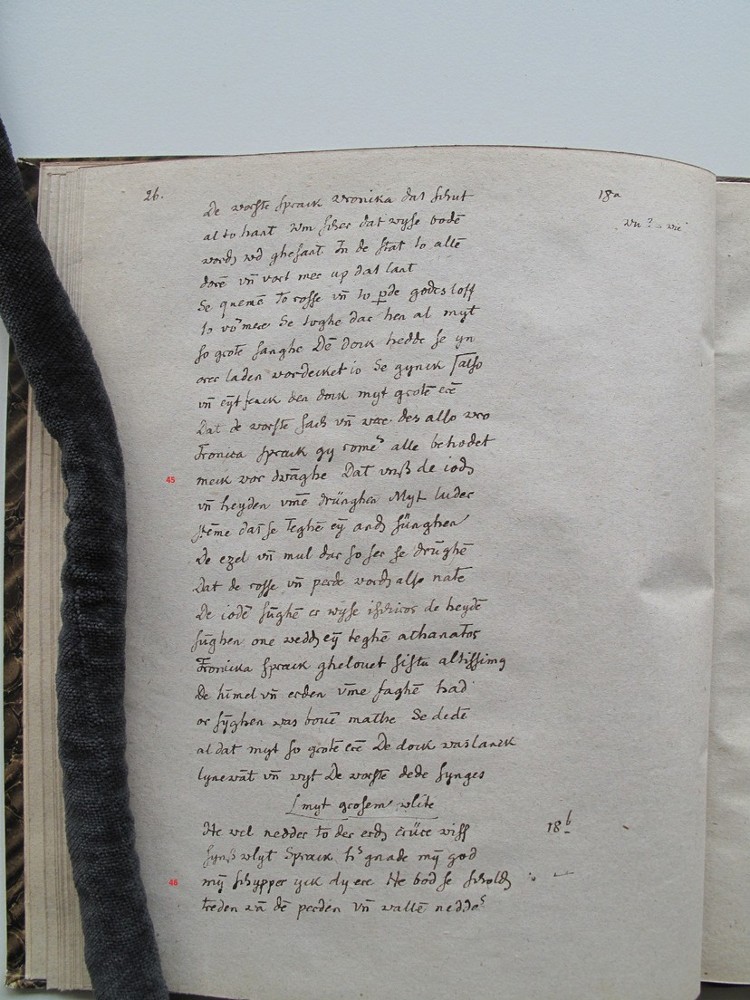 26.
18a
De vorste sprack vronika dat schut
al to hant vm scher dat wyse bodē
word wd ghesant In de stat to allē
dorē vn̄ vort mer up dat lant
Se quemē to rosse vn̄ to p̱de godes loff
to vormere Se toghe dar hen al myt
so grote sanghe Dē dock hedde se yn
orer laden vordecket io Se gynck also
vn̄ entfenck den dock myt grotē erē
Dat de vorste sach vn̄ wart des also vro
Fronica sprack gy romer alle behodet
45
meck vor dwāghe Dat vnß de iod
vn̄ heyden vmē drünghen Myt luder
stēme dat se teghē eȳ and sünghen
De ezel vn̄ mul dar so ser se drūghē
Dat de rosse vn̄ perde word also natē
De iodē sūghē er wyse ischiros de heydē
sūghen one wedd eȳ teghē athanatos
Fronicka sprack ghelouet sistu altissimq
De hīmel vn̄ erden vme saghē had
or sȳghen was bouē mathe Se dedē
al dat myt so grotē erē De dock was lanck
lynewāt vn̄ wyt De vorste dede synges
myt grosem vlite
He vel nedder to der erd crüce wiß
18b
synß vlyt Sprack hr gnade mȳ god
46
mȳ schypper yck dy ere He bod se schold
treden vā dē perden vn̄ vallē nedder